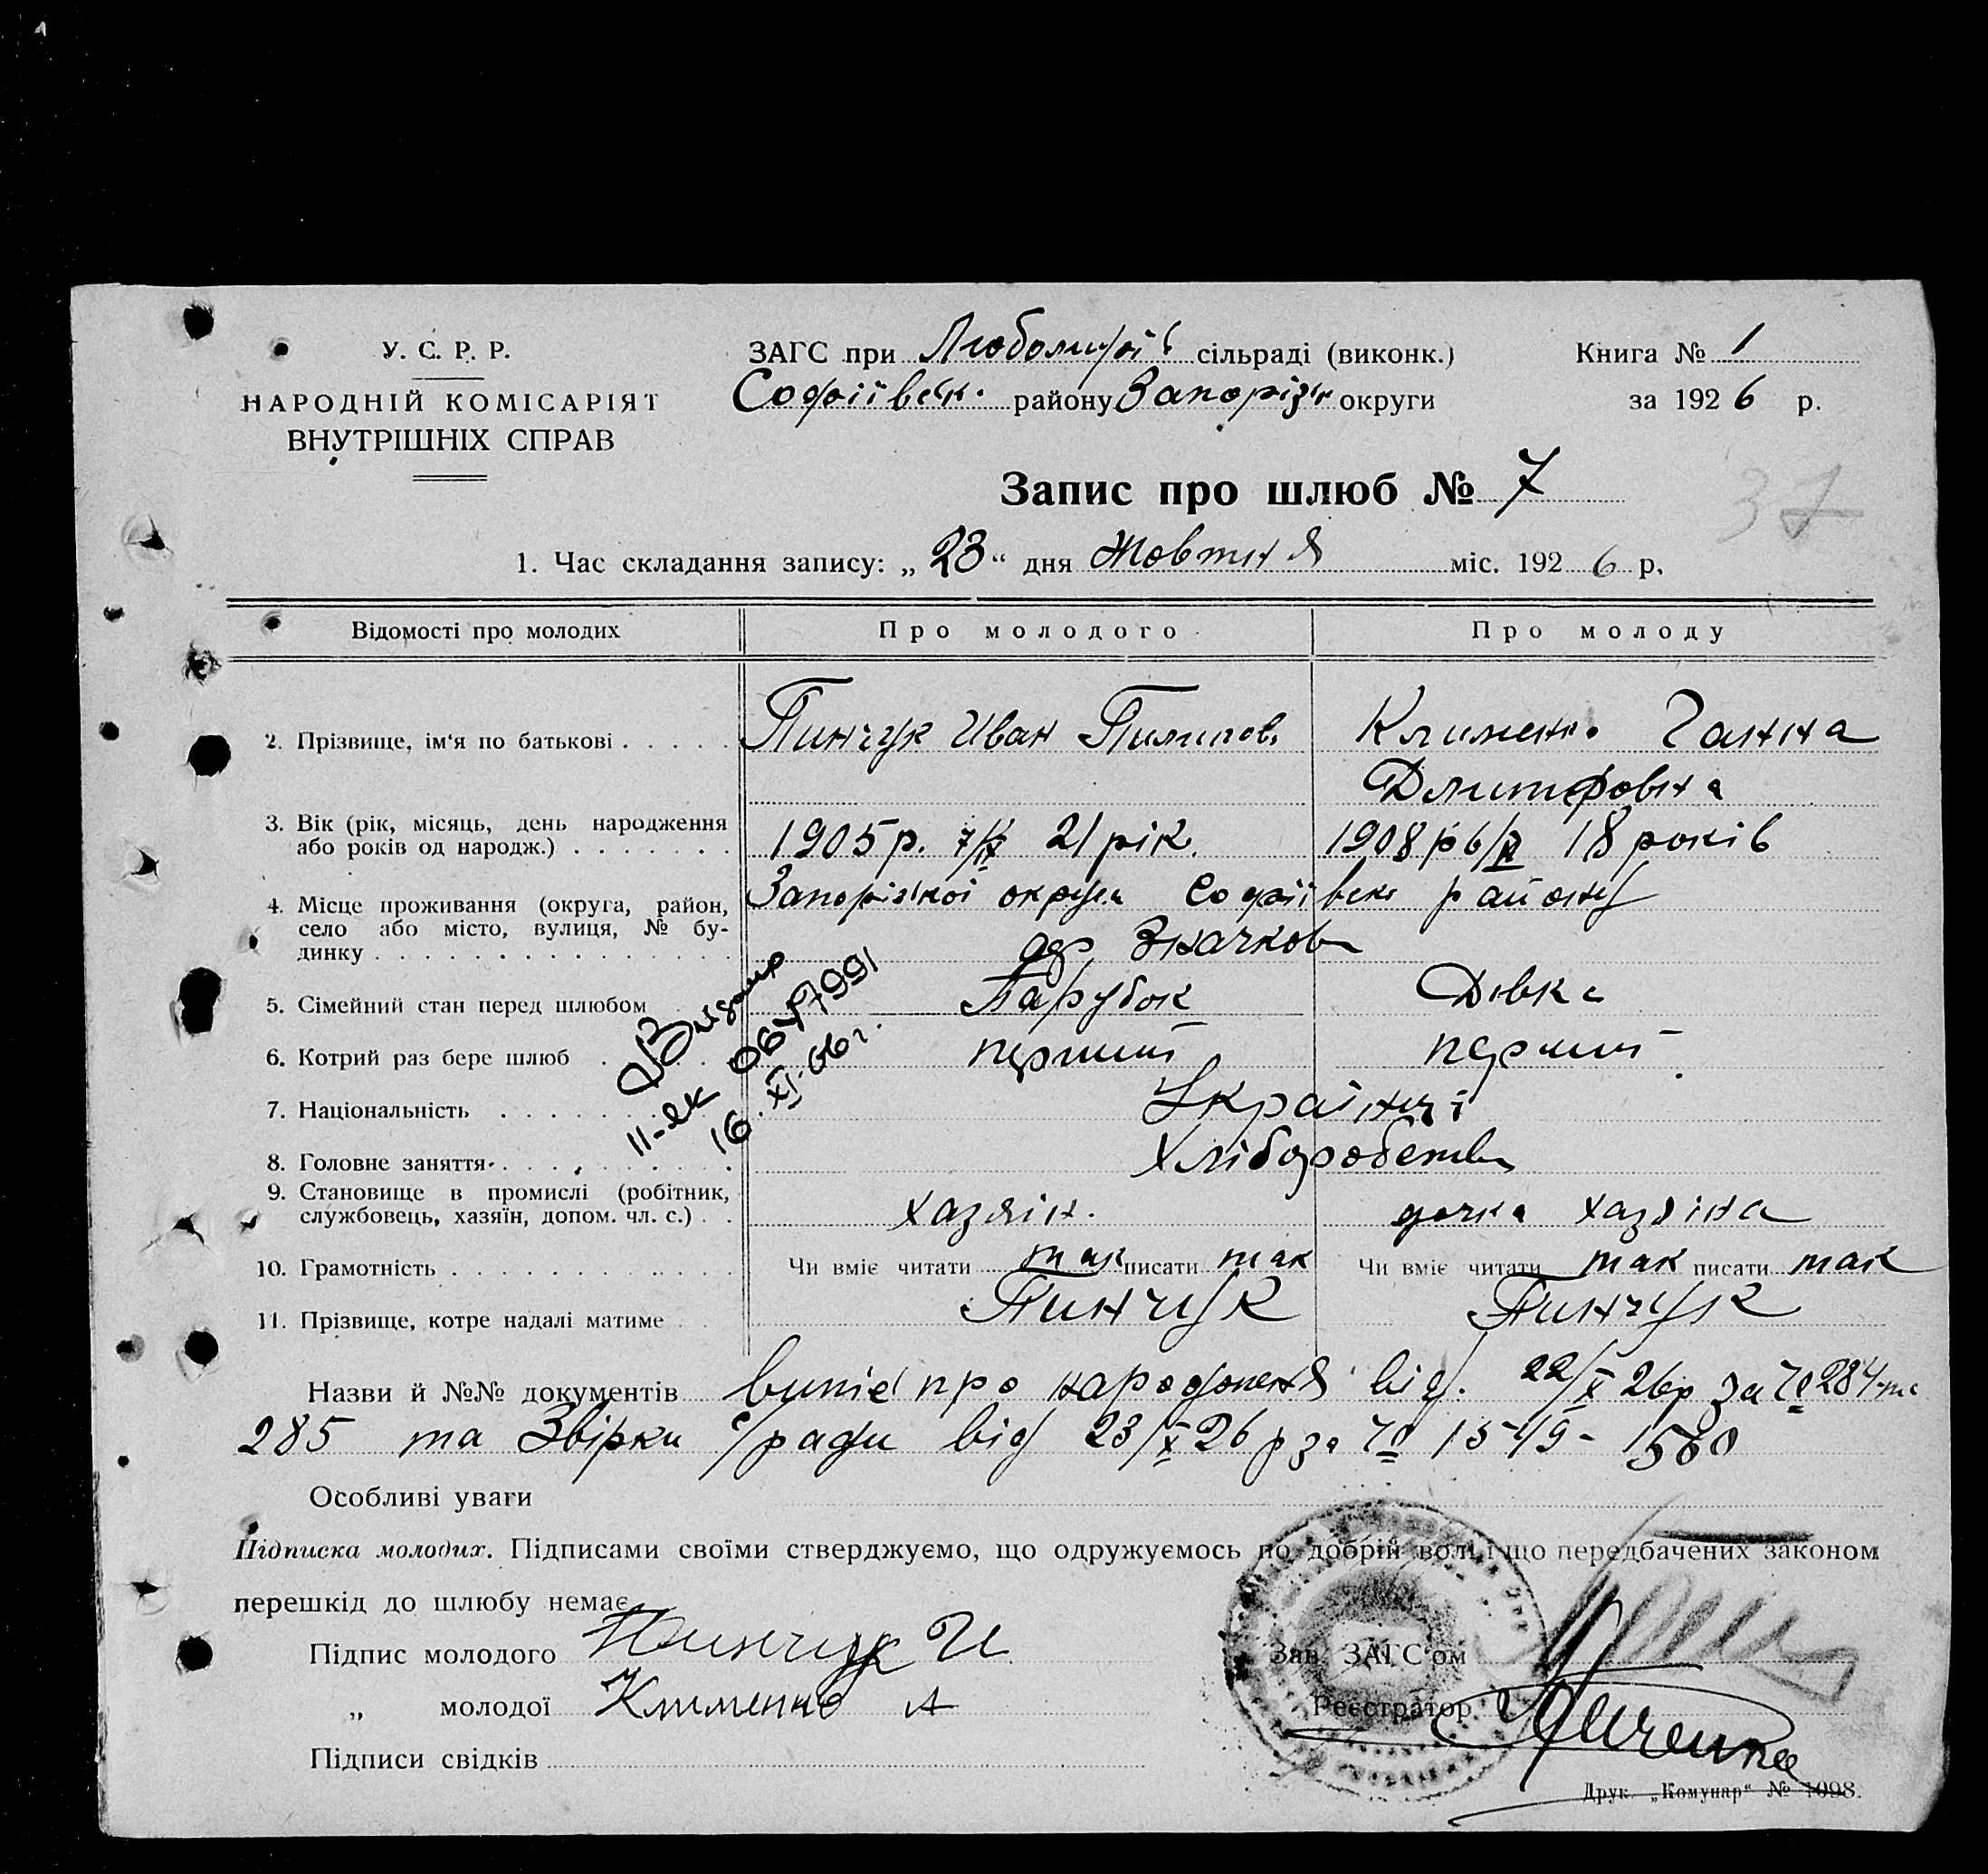 У. С. Р. Р.
НАРОДНІЙ КОМІСАРІЯТ
ВНУТРІШНІХ СПРАВ
ЗАГС при сільраді (виконк.)
Софіівськ. району Запорізьк округи
Книга № 1
за 1926 р.
Запис про шлюб № 7
37
1. Час складання запису: „ 23 “ дня Жовтня міс. 1926 р.
Відомості про молодих Про молодого Про молоду
2. Прізвище, ім'я по батькові . . . . . Пинчук Иван Пилипов. Клименко Ганна
Дмитровна
3. Вік (рік, місяць, день народження
або років од народж.) . . . . . . . 1905 р. 21 рік. 1908 р 18 років
4. Місце проживання (округа, район,
село або місто, вулиця, № бу-
динку . . . . . . . . . . . . . . .
Запорізької округи Софіівськ району
Значково
5. Сімейний стан перед шлюбом Парубок Дівка
6. Котрий раз бере шлюб перший перший
7. Національність Українці
8. Головне заняття Хліборобство
9. Становище в промислі (робітник,
службовець, хазяїн, допом. чл. с.) . . хазяін. дочка хазяіна
10. Грамотність Чи вміє читати так писати так Чи вміє читати так писати так
11. Прізвище, котре надалі матиме Пинчук Пинчук
16.XI.66г.
Назви й №№ документів випіс про народження від. 22/X 26р за № 284 та
285 та Звірки с/ради від 23/X 26 р за № 1549-
Особливі уваги
Підписка молодих. Підписами своїми стверджуємо, що одружуємось по добрій волі і що передбачених законом
перешкід до шлюбу немає
Підпис молодого Пинчук И
„ молодої Клименко А
Підписи свідків
Зав. ЗАГС'ом
Реєстратор
Друк. „Комунар“ № 1098.